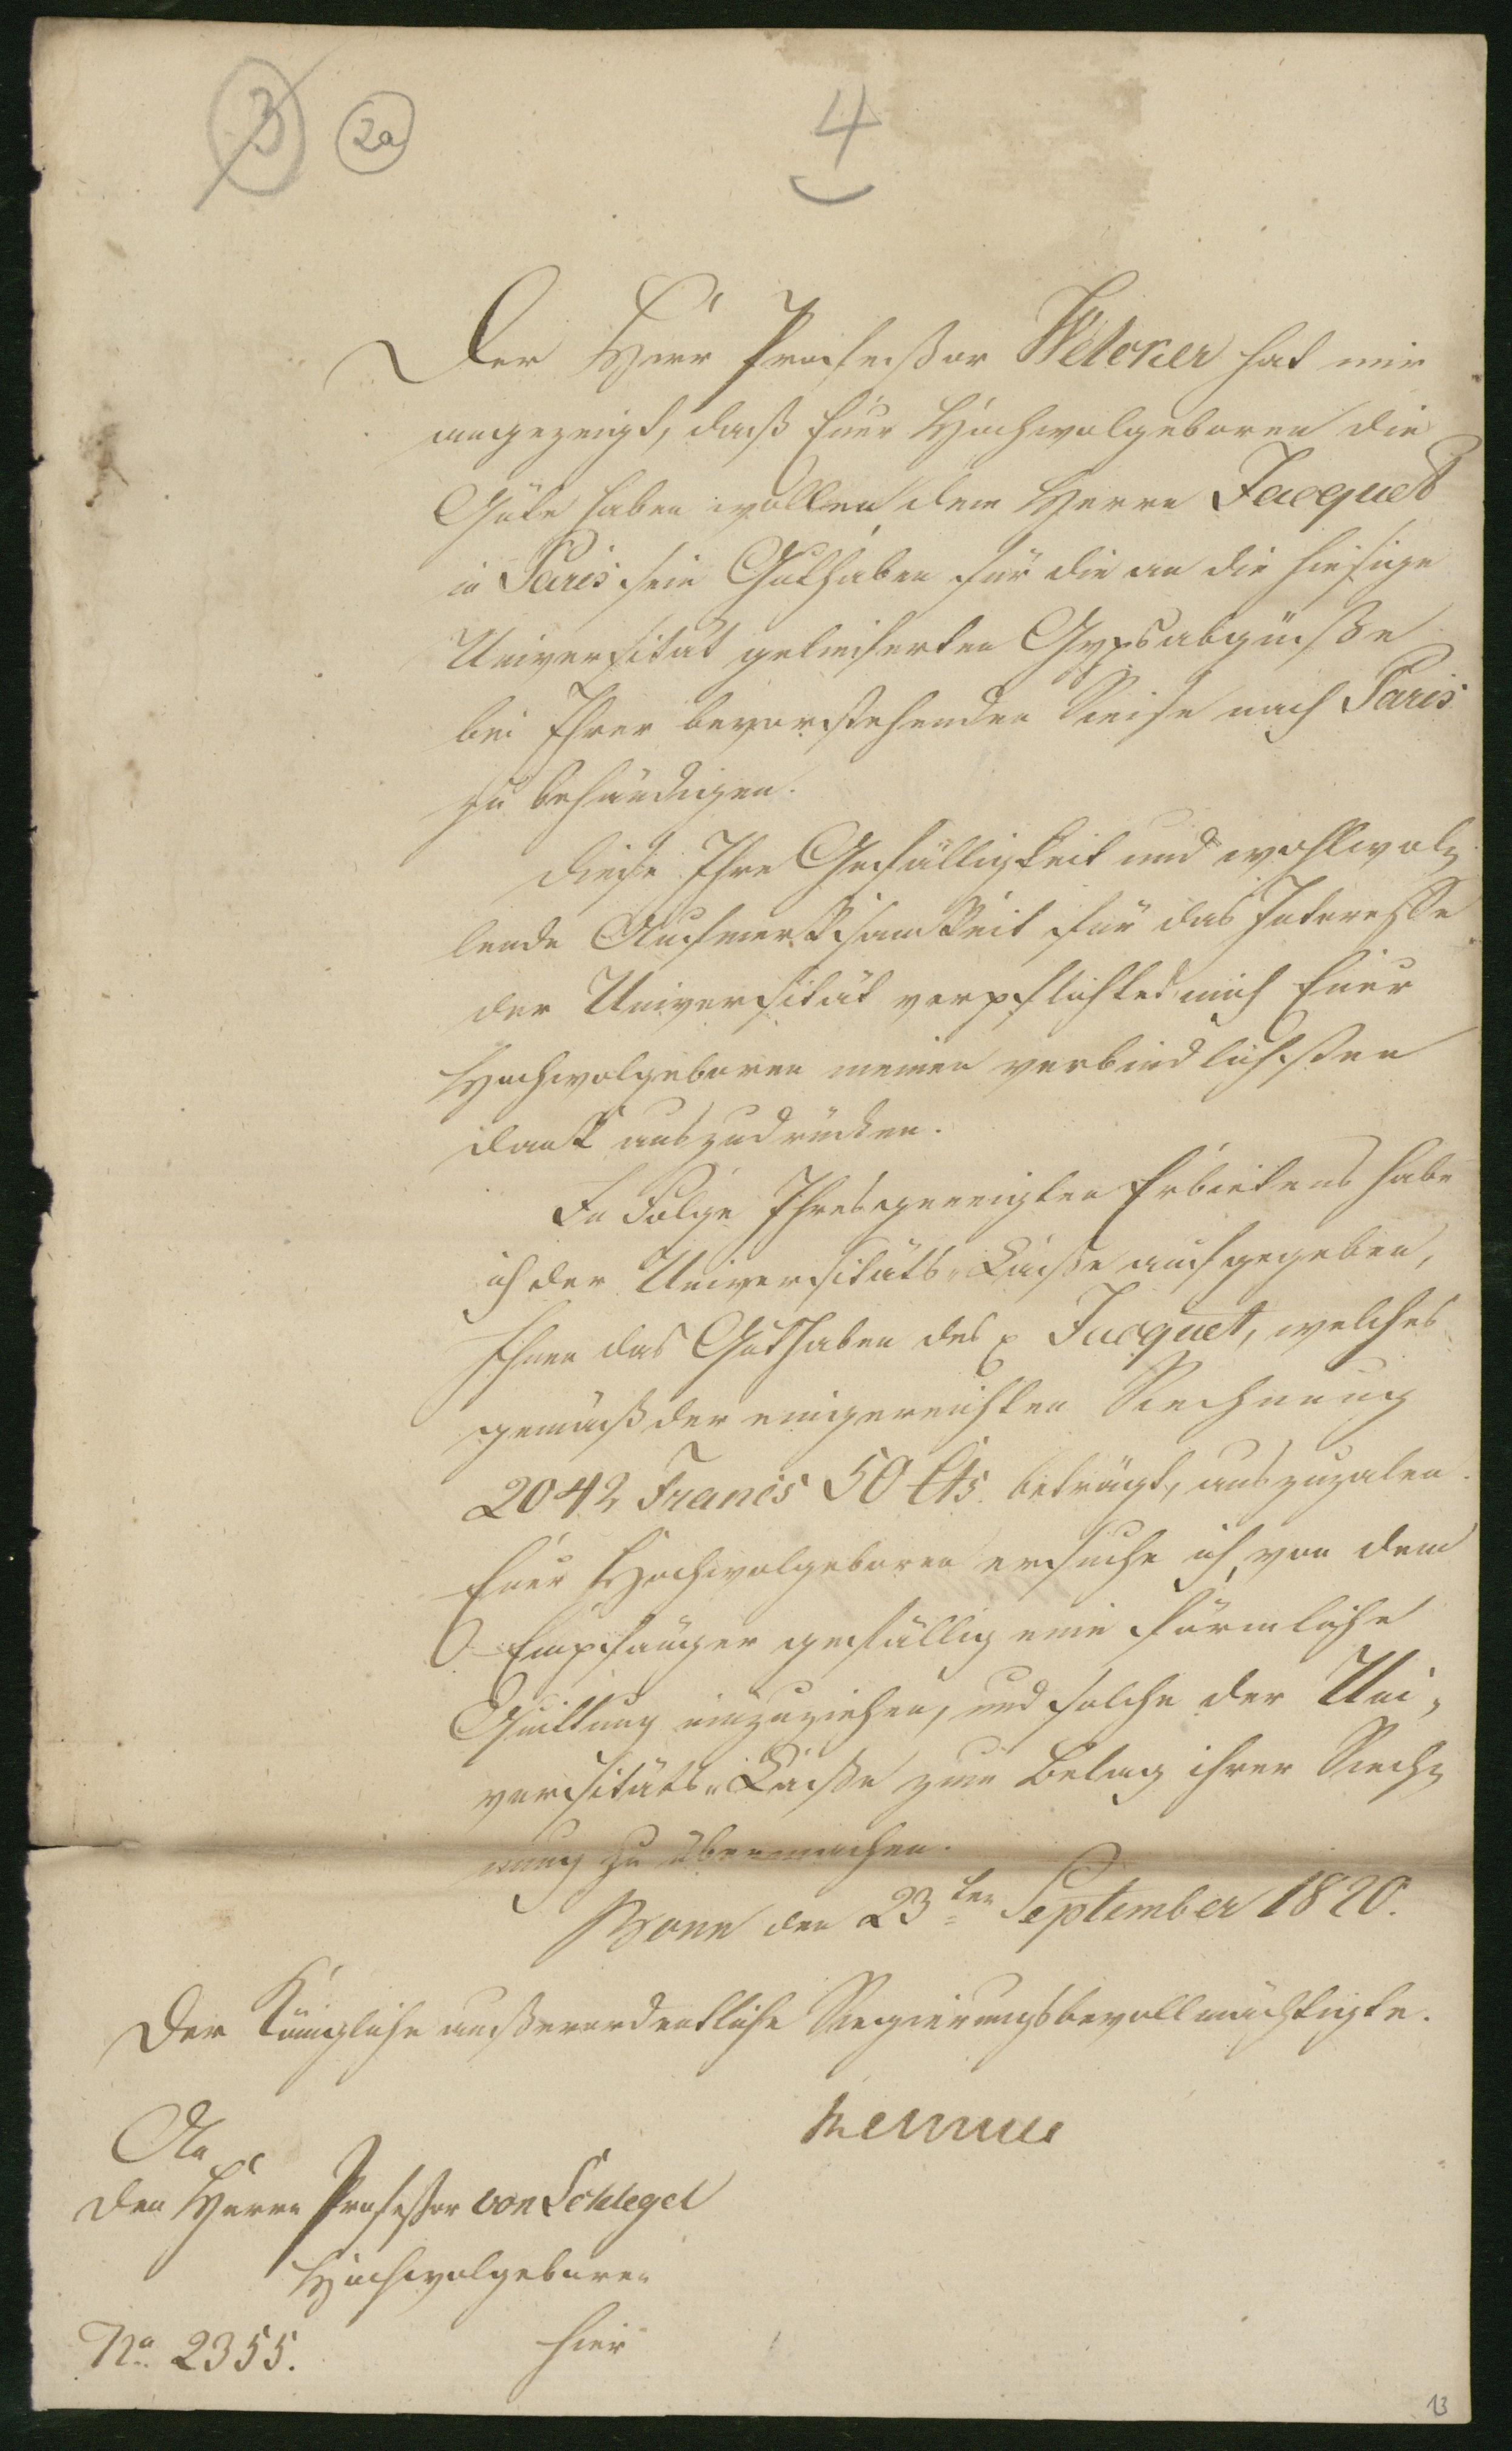 3 2a 4
Der Herr Professor Welcker hat mir
angezeigt, daß Euer Hochwolgeboren die
Güte haben wollen, dem Herrn Jacquet
in Paris sein Guthaben für die an die hiesige
Universität gelieferten Gypsabgüße
bei Ihrer bevorstehenden Reise nach Paris
zu behändigen.
Diese Ihre Gefälligkeit und wohlwol-
lende Aufmerksamkeit für das Interesse
der Universität verpflichtet mich Euer
Hochwolgeboren meinen verbindlichsten
Dank auszudrücken.
In Folge Ihres geneigten Erbietens habe
ich der Universitäts-Kasse aufgegeben,
Ihnen das Guthaben des p Jacquet, welches
gemäß der eingereichten Rechnung
2042 Francs 50 Cts. beträgt, auszuzalen.
Euer Hochwolgeboren ersuche ich, von dem
Empfänger gefällig eine förmliche
Quittung einzuziehen, und solche der Uni-
versitäts-Kasse zum Belag ihrer Rech-
nung zu übermachen.
Bonn den 23ten September 1820.
Der Königliche außerordentliche Regierungsbevollmächtigte.
Rehfues
An
den Herrn Professor von Schlegel
Hochwolgeboren
hier
No. 2355.
13